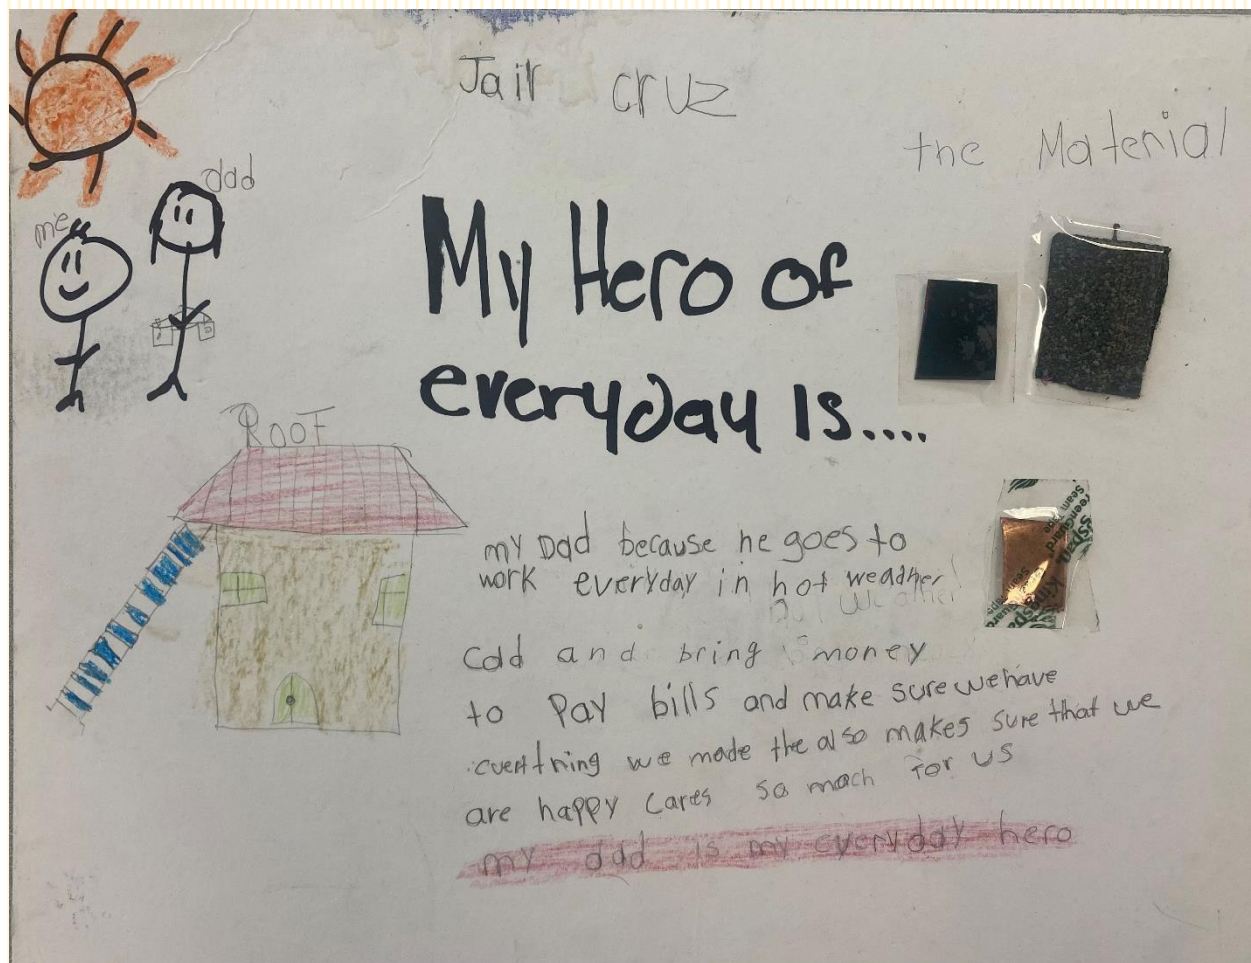 Jair cruz
the Material
dad
me
My Hero of
everyday Is....
ROOF
my Dad because he goes to
work everyday in hot weather
cold and bring money
to Pay bills and make sure we have
we made the also makes sure that we
are happy cares so mach for us
my dad is my everyday hero